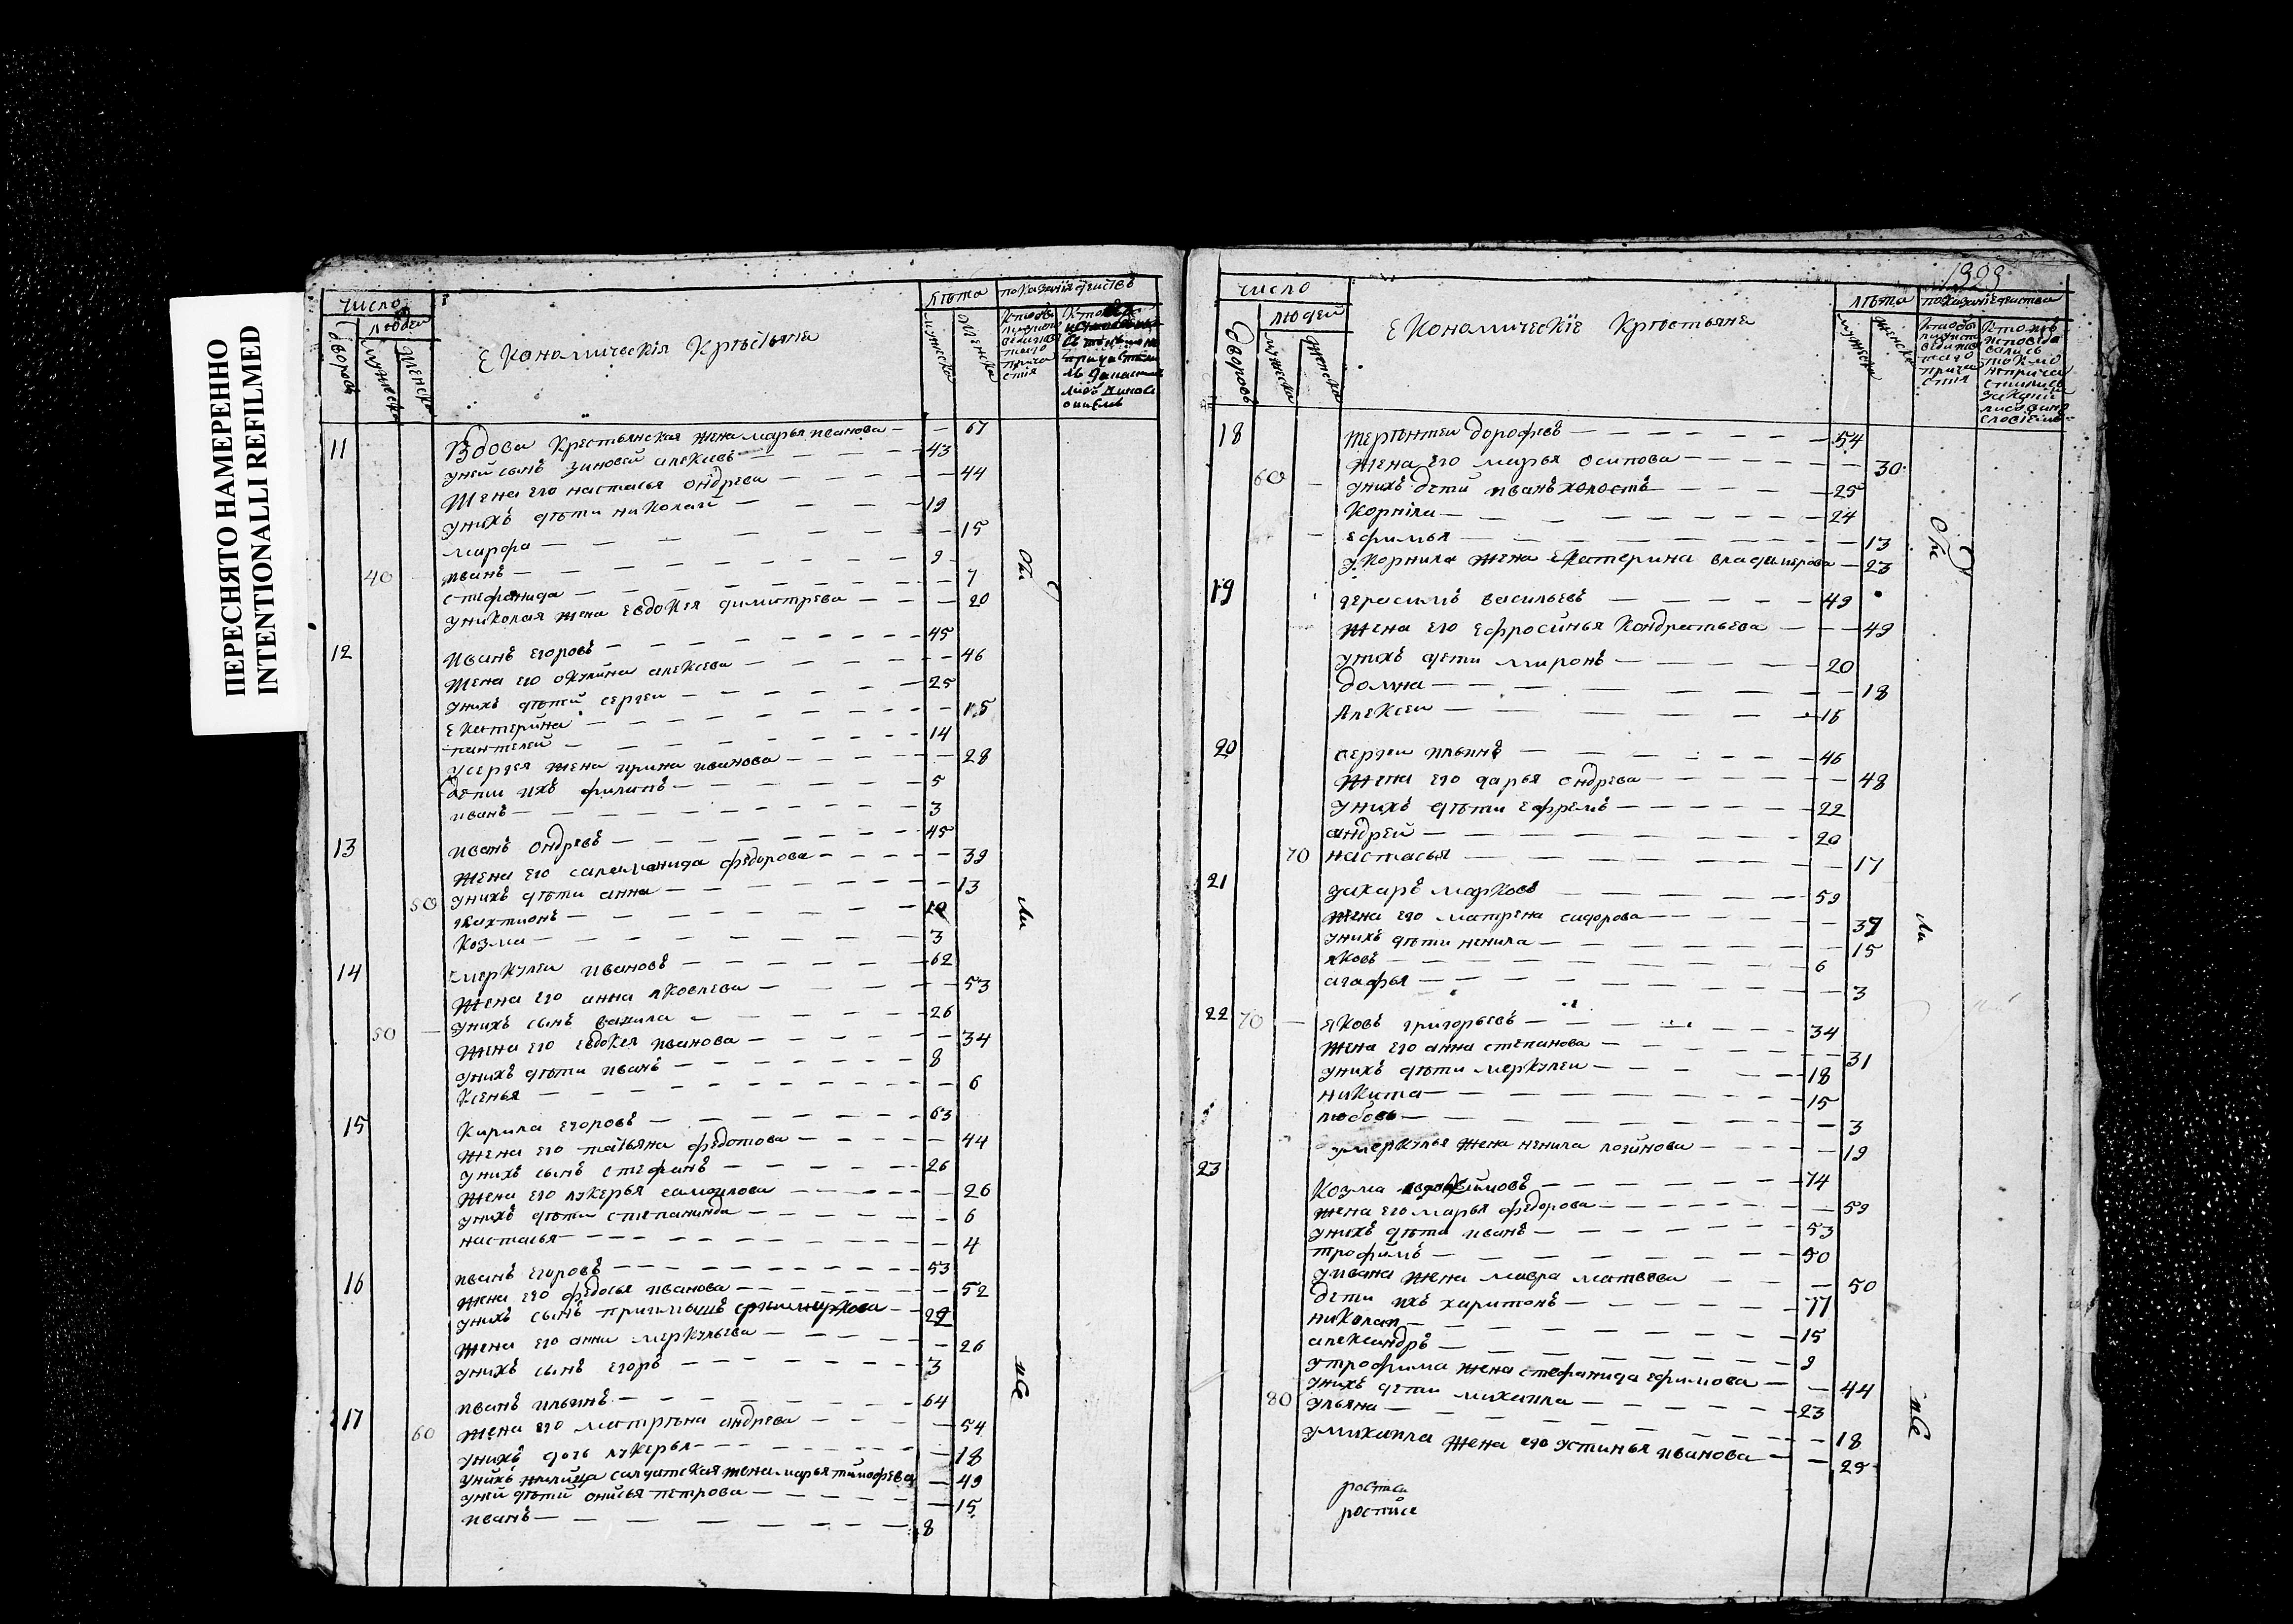 ПЕРЕСНЯТО НАМЕРЕННО
INTENTIONALLI REFILMED
число
людей
дворовъ
мужеска
женска
Економическия Крѣстьяне
лѣта
мужеска
женска
показание действъ
11 Вдова Крестьянская жена марья иванова 67
унеи сынъ зиновеи алексевъ 43
Жена его настасья ондрева 44
унихъ дѣти николаи 19
марфа 15
40 иванъ 9
стефанида 7
униколая жена Евдокея димитрева 20
12 иванъ егоровъ 45
Жена его окулина алексева 46
унихъ дѣтей сергеи 25
Екатерина 15
пантелей 14
усергея жена ирина иванова 28
дети ихъ филипъ 5
иванъ 3
13 иванъ ондревъ 45
Жена его саламанида федорова 39
50 унихъ дѣти анна 13
Козма 3
14 меркулеи ивановъ 62
Жена его анна яковлева 53
унихъ сынъ 26
50 Жена его евдокея иванова 34
унихъ дѣти иванъ 8
Ксенья 6
15 Кирила егоровъ 63
Жена его татьяна федотова 44
унихъ сынъ стефанъ 26
Жена его лукерья самоилова 26
унихъ дѣти степанида 6
настасья 4
16 иванъ егоровъ 53
Жена его федосья иванова 52
унихъ сынъ приимышъ
Жена его анна меркульева 26
унихъ сынъ егоръ 3
17 иванъ ильинъ 64
60 Жена его матрѣна андрева 54
унихъ дочь лукерья 18
унихъ солдатская жена марья тимофева 49
унеи дѣтей онисья петрова 15
иванъ 8
Ог
ли
все
число
людей
дворовъ
мужеска
женска
Економическiе Крѣстьяне
лѣта
мужеска
женска
показание действа
18 терѣнтеи дорофевъ 54
Жена его марья осипова 30
60 унихъ дети иванъ холостъ 25
Корнiла 24
Ефимья 13
укорнила жена Екатерина владимерова 23
19 герасимъ васильевъ 49
Жена его Ефросинья Кондратьева 49
унихъ дети миронъ 20
домна 18
Алексеи 16
20 сергеи ильинъ 46
Жена его дарья ондрева 48
унихъ дѣти Ефремъ 22
андрей 20
70 настасья 17
21 захаръ марковъ 59
Жена его матрена сидорова 37
унихъ дѣти ненила 15
яковъ 6
агафья 3
22 70 яковъ григорьевъ 34
Жена его анна степанова 31
унихъ дѣти меркулеи 18
никита 15
любовь 3
умеркулья жена ненила логинова 19
23 Козма 74
Жена его марья федорова 59
унихъ дѣти иванъ 53
трофимъ 50
уивана жена мавра матвева 50
дети ихъ харитонъ 17
николаи 15
александръ 9
утрофима жена стефанида ефимова 44
унихъ дети михаила 23
80 ульяна 18
умихаила жена его устинья иванова 25
Ог
ли
все